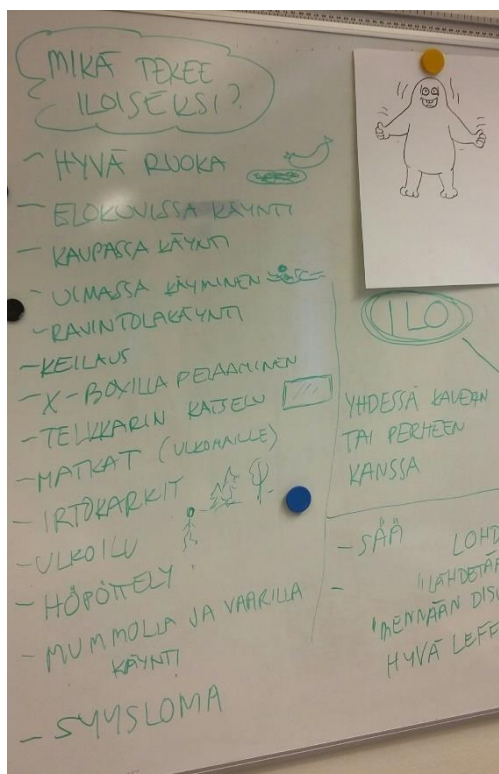 MIKÄ TEKEE
ILOISEKSI?
- HYVÄ RUOKA
- ELOKUVISSA KÄYNTI
- KAUPASSA KÄYNTI
- UIMASSA KÄYMINEN
- RAVINTOLAKÄYNTI
- KEILAUS
- X-BOXILLA PELAAMINEN
- TELKKARIN KATSELU
- MATKAT (ULKOMAILLE)
- IRTOKARKIT
- ULKOILU
- HÖPÖTTELY
- MUMMOLLA JA VAARILLA
KÄYNTI
- SYYSLOMA
ILO
YHDESSÄ KAVERIN
TAI PERHEEN
KANSSA
- SÄÄ
-
LOHD
"LÄHDETÄÄ
"MENNÄÄN DISC
HYVÄ LEFF